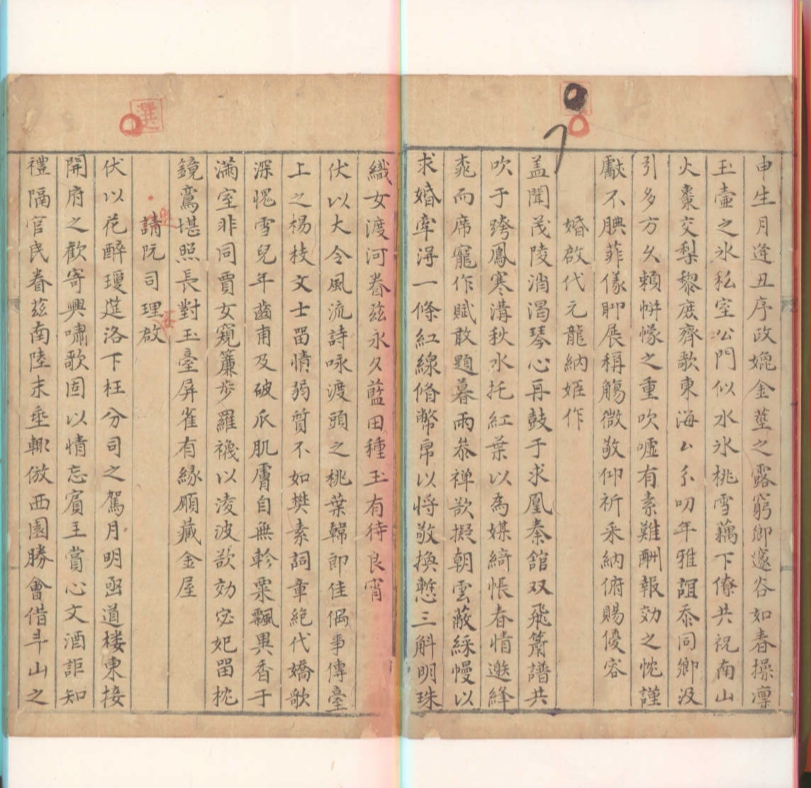 申生月逢丑序政嬾金莖之露窮鄉邃谷如春操凛
玉壷之氷私室公門似水氷桃雪藕下僚共祝南山
火棗交梨黎庶齊歌東海厶叨年雅誼忝同鄉汲
引多方久賴帡幪之重吹噓有素難酬報効之忱謹
獻不腆菲儀聊展稱觴微敬仰祈采納俯賜優容
婚啟代元龍納姬作
盖聞茂陵消渴琴心再鼓于求凰秦館双飛簫譜共
吹于跨鳳寒溝秋水托紅葉以為媒綺悵春情遊絳
帷而席寵作賦敢題暮雨叅禅欲擬朝雲蔽綵幔以
求婚牽得一條紅線脩幣帛以将敬換慙三斛明珠
織女渡河眷兹永夕藍田種玉有待良宵
伏以大令風流詩咏渡頭之桃葉韓郎佳偶事傳臺
上之楊枝文士畱情弱質不如樊素詞章絕代嬌歌
深愧雪兒年齒甫及破瓜肌膚自無軫粟飄異香于
滿室非同賈女窺簾步羅襪以淩波欲効宓妃畱枕
鏡鸞堪照長對玉臺屏雀有緣願藏金屋
請阮司理啟
伏以花醉瓊筵洛下枉分司之駕月明函道楼東接
開府之歡寄興嘯歌固以情忘賓主賞心文酒詎知
禮隔官民眷兹南陸末垂輒倣西園勝會借斗山之
選